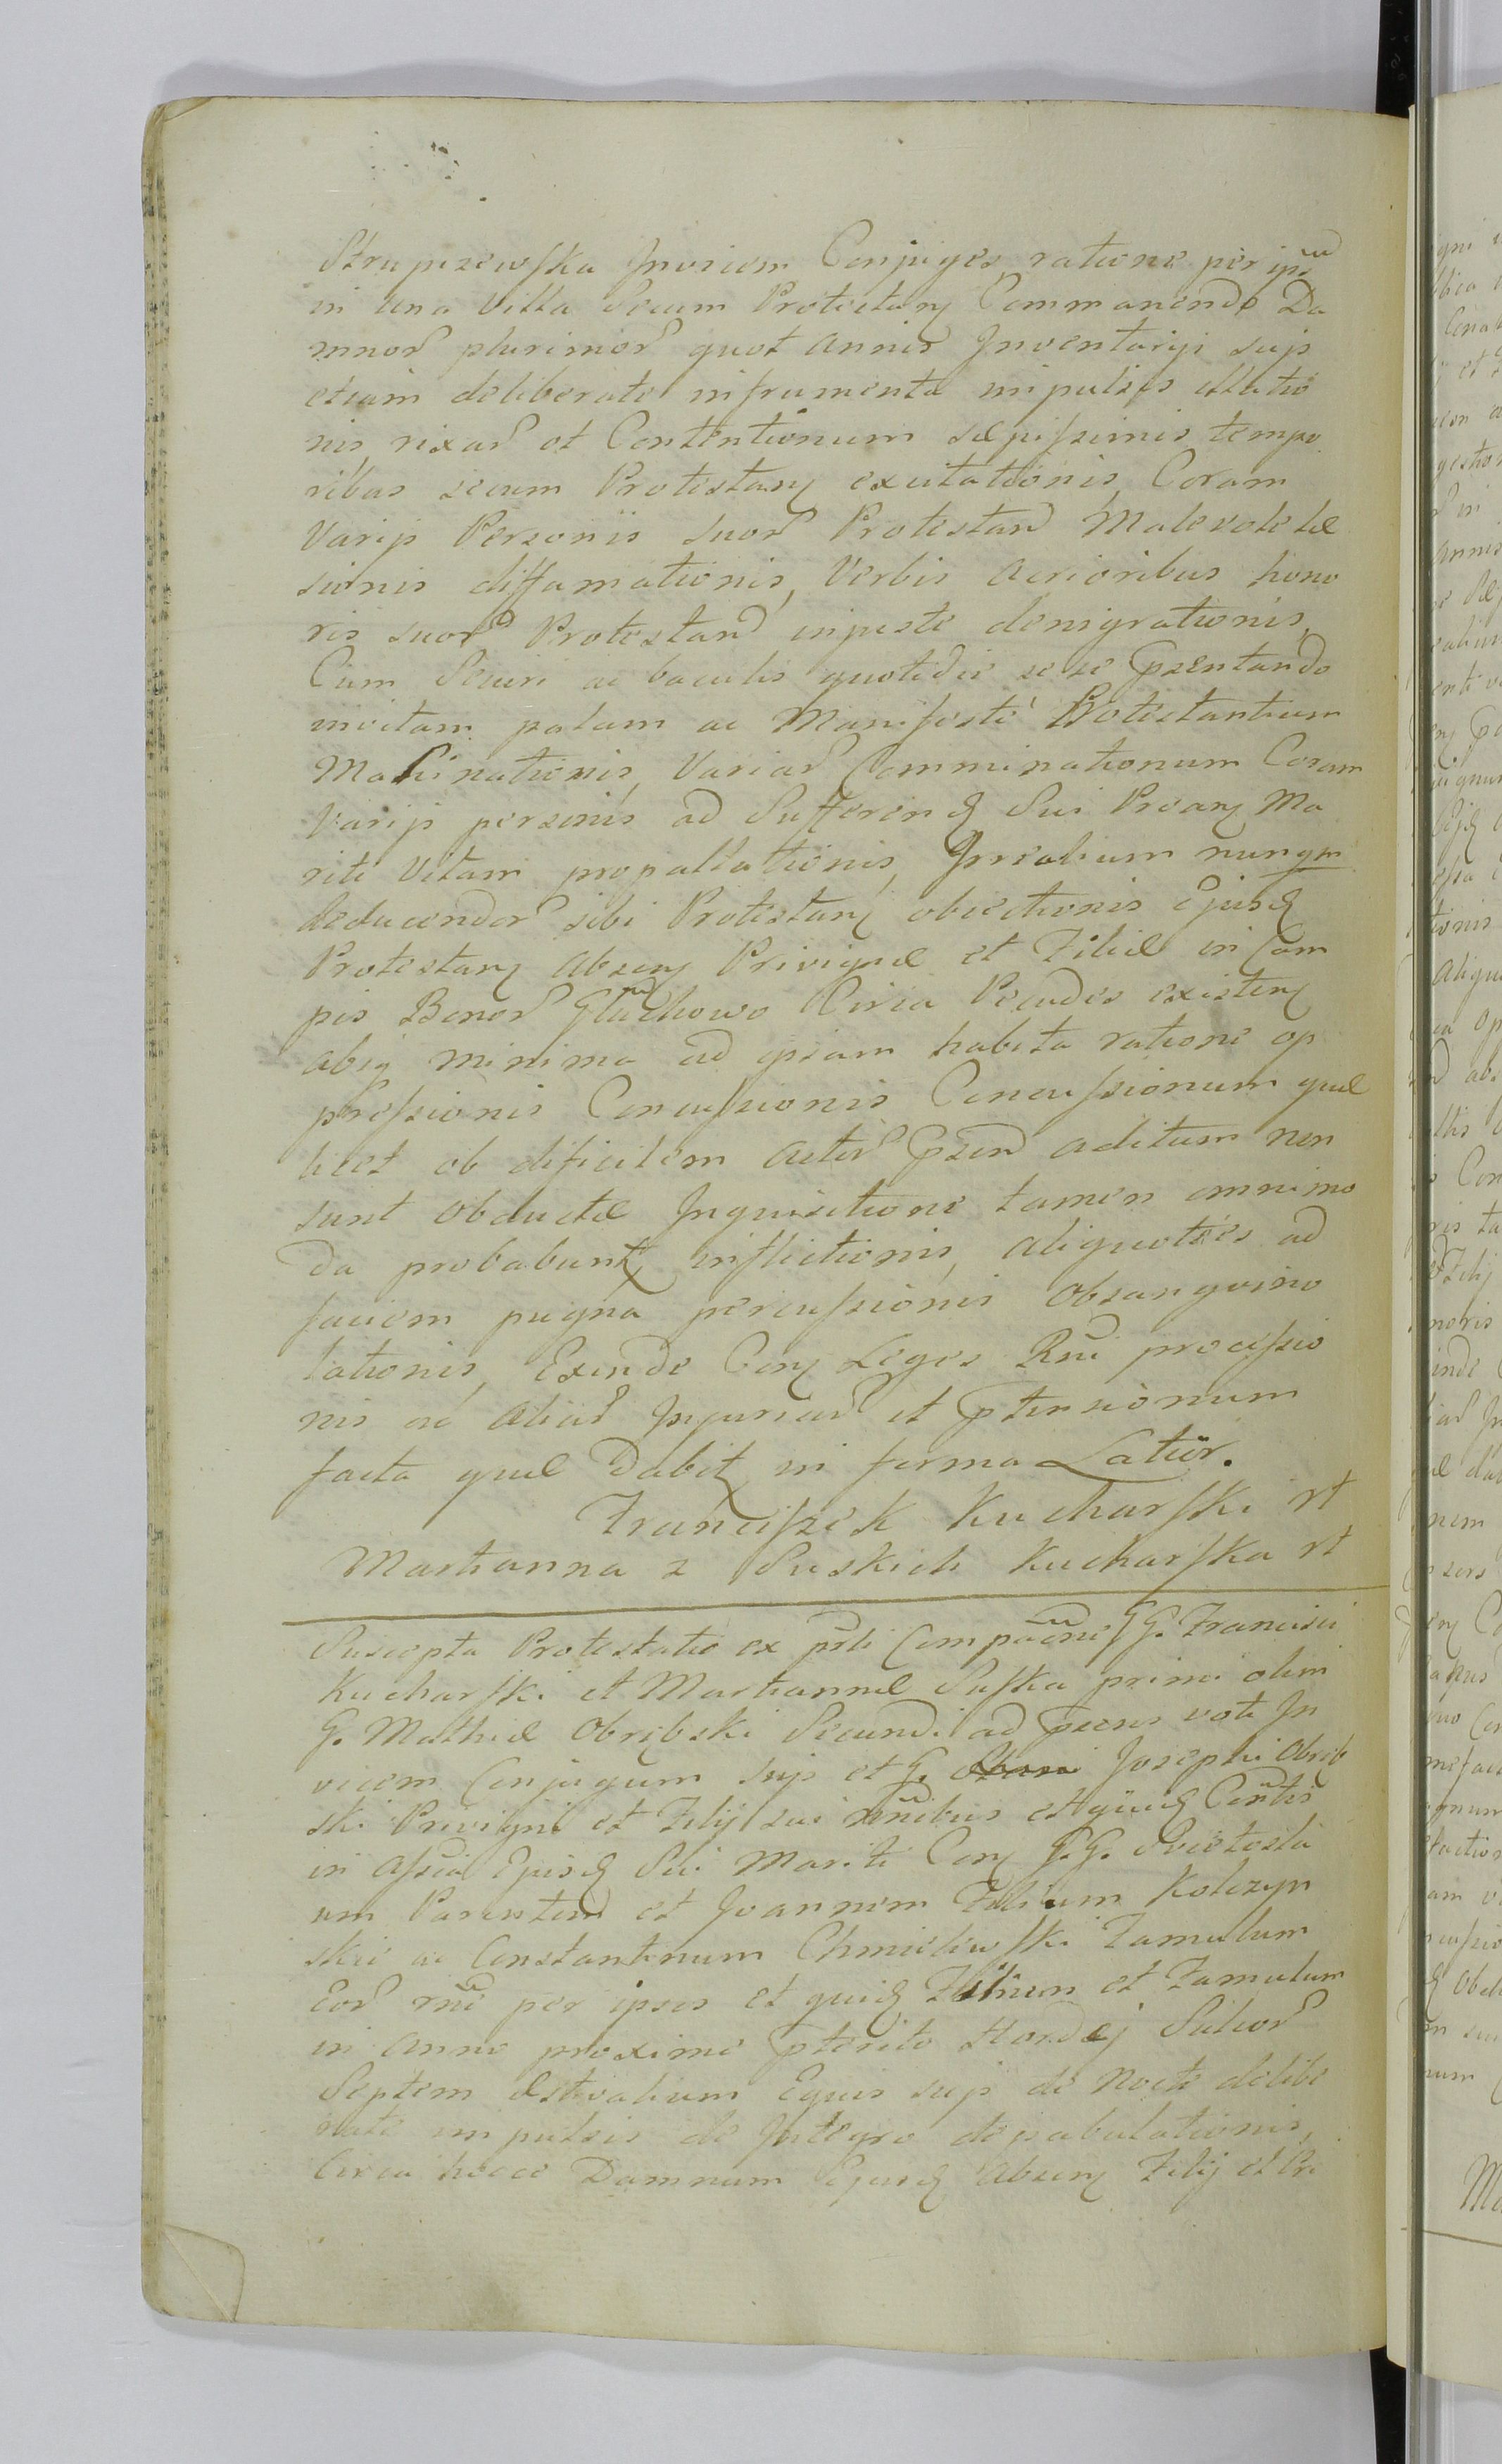 Strupczewſka Invicem Conjuges, ratione per ipõs
in una Villa secum Protestanȝ Commanendo Da
mnoꝝ plurimoꝝ quot annis Inventarijs suis
etiam deliberate in frumenta impulsis illatio
nis, rixaꝝ et Contentionum sæpiſsimis tempo
ribus secum Protestanȝ excitationis, Coram
Varijs Personis suoꝝ Protestanꝺ Malevole læ
sionis diffamationis, Verbis acrioribus hono
ris suoꝝ Protestanꝺ injuste denigrationis,
Cum Securi ac baculis quotidie se se p̃sentando
invitam palam ac Manifeste Protestantium
Machinationis, Variaꝝ Comminationum Coram
Varijs personis ad Sufferenꝺ Sui Proanȝ Ma
riti Vitam propallationis, Irrealium nunqm̃
deducendoꝝ sibi Protestanȝ obiectionis Ejusꝺ
Protestanȝ absenȝ Privignæ et Filiæ in Cam
pis Bonoꝝ Głuchowo Circa Pecudes existenȝ
absq̃ minima ad ipsam habita ratione op
preſsionis Concuſsionis Concuſsionum quæ
licet ob dificilem Actoꝝ p̃senꝺ aditum non
sunt obductæ Inquisitione tamen omnimo
da probabunt̃ inflictionis, aliquoties ad
faciem pugna percuſsionis Obsanguino
lationis, Exinde Conȝ Leges Rñi proceſsio
nis ac aliaꝝ Injuriaꝝ et p̃tensionum
facta quæ dabit̃ in forma Latiõr.
Franciſzek Kucharſki rt
Martianna z Suskich Kucharſka rt
Suscepta Protestatio ex p̃sli Compãone GG. Francisci
Kucharſki et Martiannæ Suſka primi olim
G. Mathiæ Obrębski Secundi ad p̃sens voti In
vicem Conjugum suis et G. Josephi Obręb
ski Privigni et Filij sui nõibus
in aſsia Ejusꝺ Sui Mariti Conȝ GG. Swietosla
um Parentem et Joannem Filium Kołczyn
skie ac Constantinum Chmieliewſki Famulum
Eoꝝ rñe per ipsos et quidȝ Filium et Famulum
in anno proxime p̃terito Hordej Sulcoꝝ
Septem æstivalium Equis suis de Nocte delibe
rate impulsis de Integro depabulationis,
Circa hocce Damnum Ejusꝺ absenȝ Filij et Pri